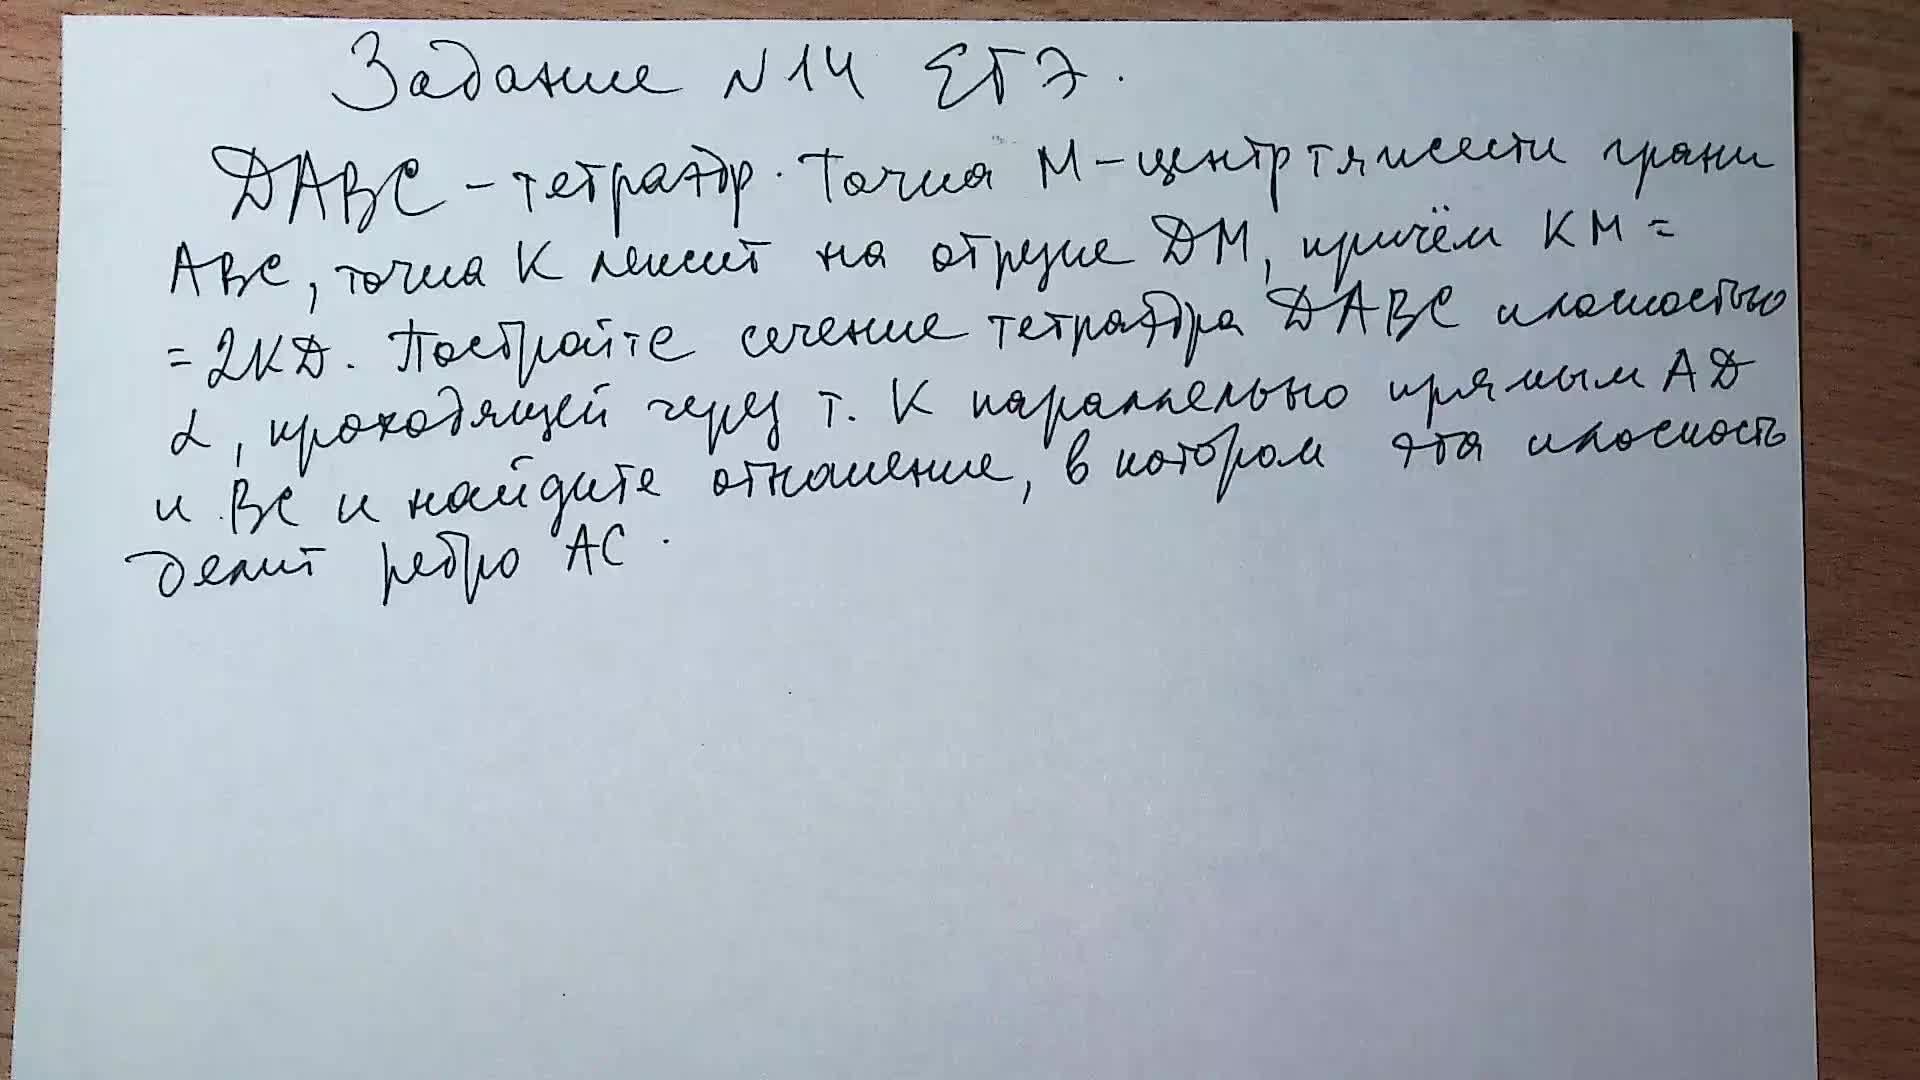 Задание №14 ЕГЭ.
DABC – тетраэдр. Точка М – центр тяжести грани
АВС, точка К лежит на отрезке DM, причём КМ =
= 2КD. Постройте сечение тетраэдра DABC плоскостью
α, проходящей через т. К параллельно прямым AD
и ВС и найдите отношение, в котором эта плоскость
делит ребро АС.